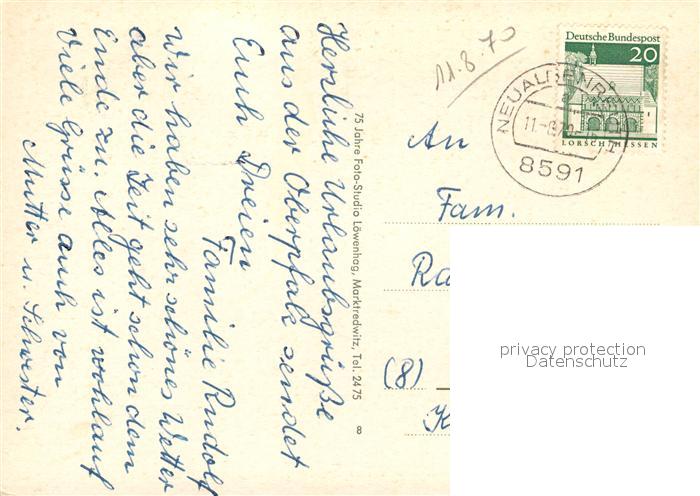 Herzliche Urlaubsgrüße
aus der Oberpfalz sendet
Euch Dreien
Familie Rudolf
Wir haben sehr schönes Wetter
aber die Zeit geht schon dem
Ende zu. Alles ist wohlauf
Viele Grüsse auch von
Mutter u. Schwester.
75 Jahre Foto-Studio Löwenhag, Marktredwitz, Tel. 2475
8
11.8.70
Deutsche Bundespost
20
LORSCH/HESSEN
8591
An
Fam.
Ra
(8)
K
privacy protection
Datenschutz